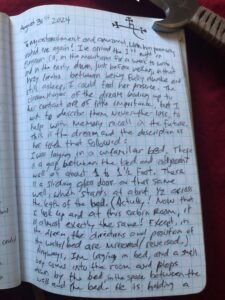 August 31st 2024
To my astonishment and
visited me again! I've arrived the 1st night in
, CO, in the mountains for a week to work
and in the early dream, just before awaken, in that
hazy limbo between being fully awake and
still asleep, I could feel her presence. The
of the dream leading up to
her contact are of little importance, but I
want to describe them nevertheless, to
help with memory recall in the future.
this is the dream and the description of
her that followed:
I was laying in a unfamiliar bed. There
is a gap between the bed and adjacent
wall of about 1 to 1½ foot. There
is a sliding glass door on that same
wall, which starts at about ½ across
the length of the bed. (Actually! Now that
I look up and at this cabin room, it
is almost exactly the same! Except, in
the dream the directions and position of
the walls/bed are mirrored/reversed.)
Anyways, I'm laying in bed, and a
comes into the room and plops
down by the bed in the space between the
wall and the bed. He is holding a